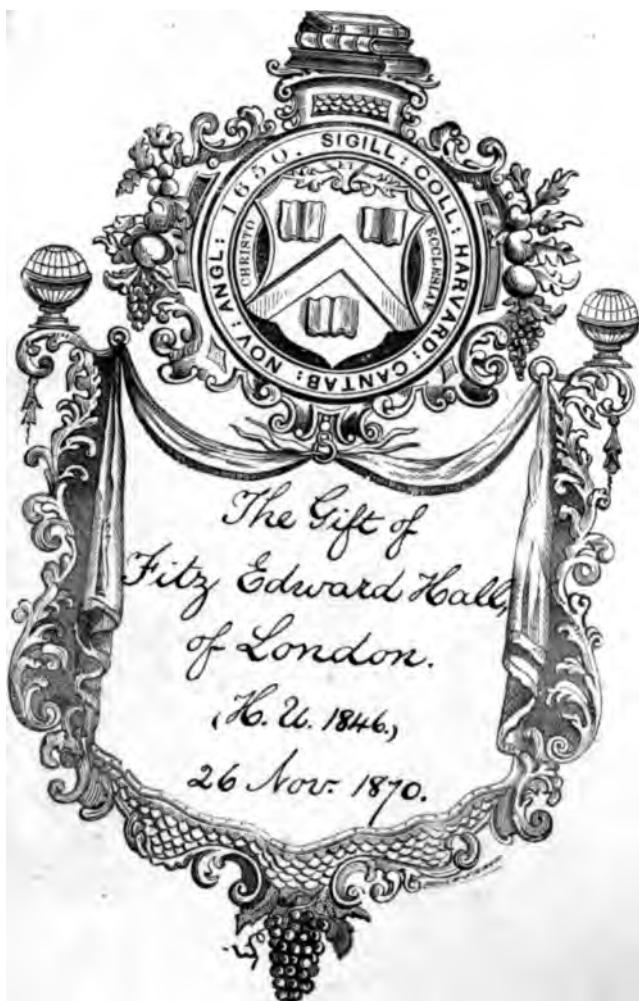 SIGILL: COLL: HARVARD: CANTAB: NOV: ANGL: 1650.
ET
CHRISTO
ECCLESIAE
The Gift of
Fitz Edward Hall,
of London.
(H. U. 1846.)
26 Nov. 1870.